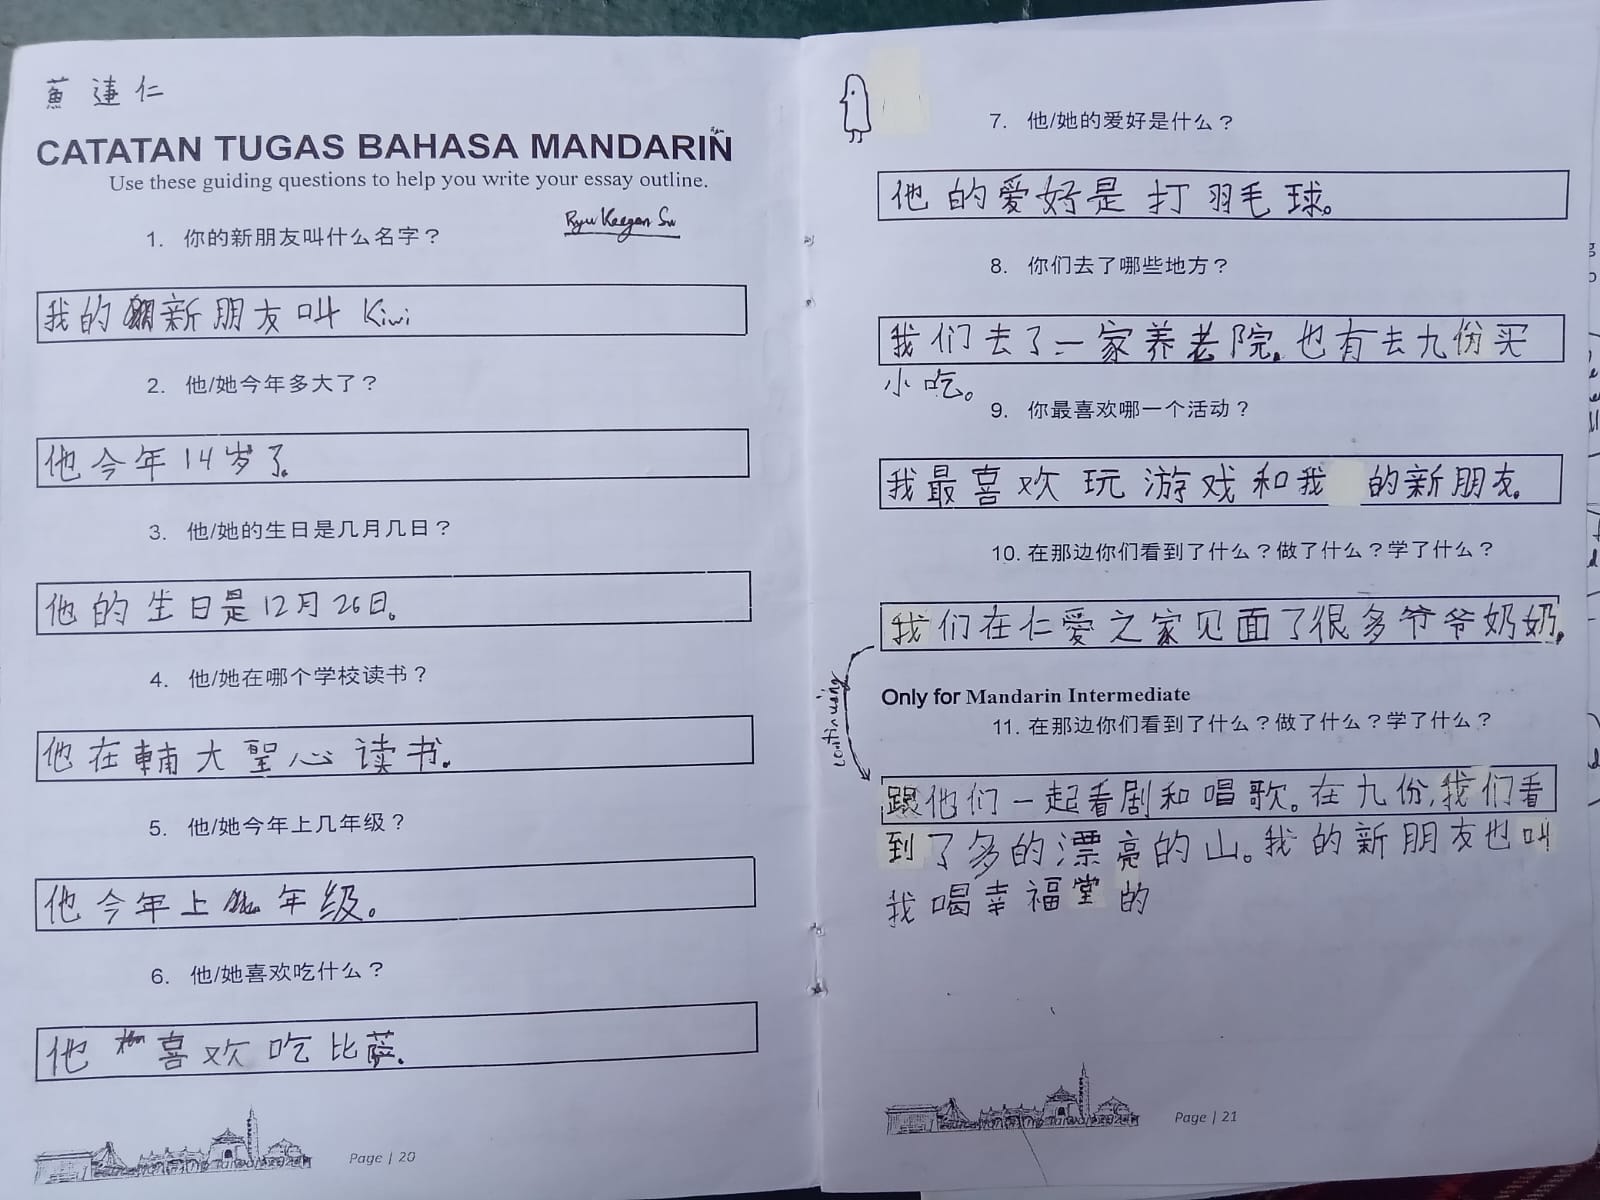 蓮仁
CATATAN TUGAS BAHASA MANDARIN
Use these guiding questions to help you write your essay outline.
Ryu Keegan Su
1. 你的新朋友叫什么名字？
我的新朋友叫 Kiwi
2. 他/她今年多大了？
他今年14岁了。
3. 他/她的生日是几月几日？
他的生日是12月26日。
4. 他/她在哪个学校读书？
他在輔大聖心读书。
5. 他/她今年上几年级？
他今年上年级。
6. 他/她喜欢吃什么？
他喜欢吃比萨.
Page | 20
7. 他/她的爱好是什么？
他的爱好是打羽毛球。
8. 你们去了哪些地方？
我们去了一家养老院. 也有去九份买
小吃。
9. 你最喜欢哪一个活动？
我最喜欢玩游戏和我的新朋友。
10. 在那边你们看到了什么？做了什么？学了什么？
我们在仁爱之家见面了很多爷爷奶奶,
continuing
Only for Mandarin Intermediate
11. 在那边你们看到了什么？做了什么？学了什么？
跟他们一起看剧和唱歌。在九份,我们看
到了多的漂亮的山。我的新朋友也叫
我喝幸福堂的
Page | 21